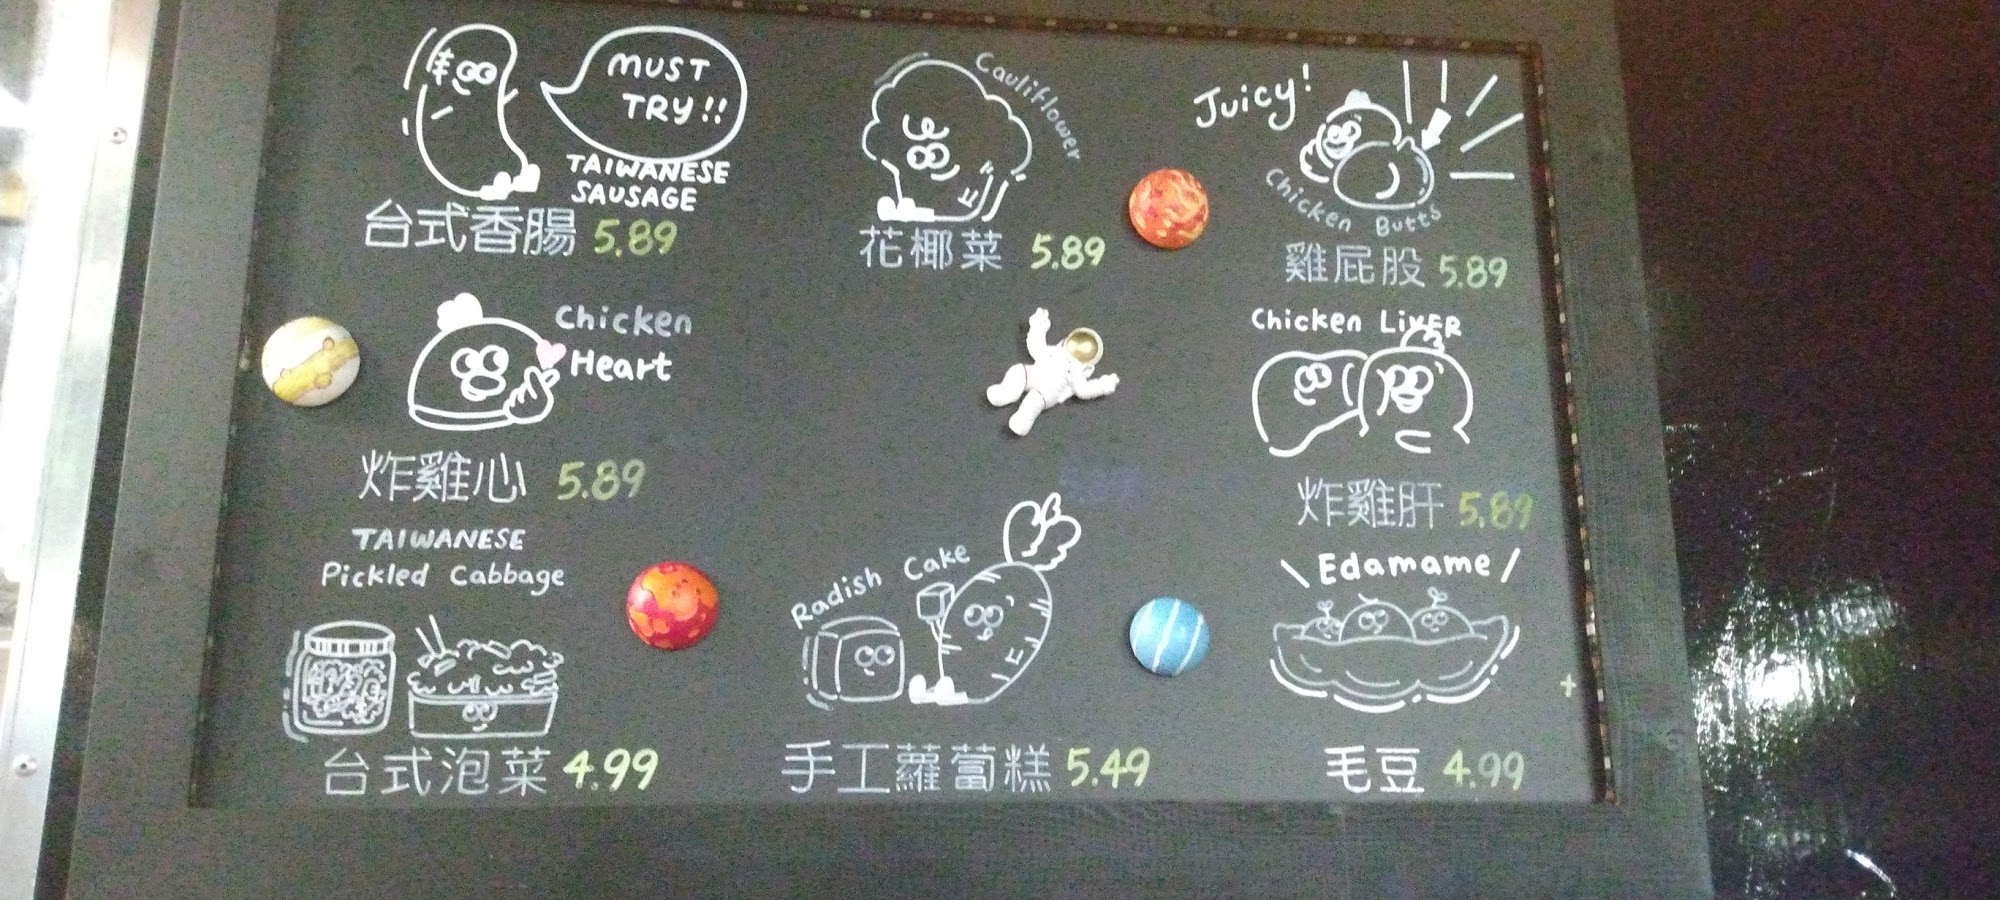 MUST
TRY!!
TAIWANESE
SAUSAGE
台式香腸 5.89
Cauliflower
花椰菜 5.89
Juicy!
Chicken Butts
雞屁股 5.89
Chicken
Heart
炸雞心 5.89
Chicken LiVER
炸雞肝 5.89
TAIWANESE
Pickled Cabbage
台式泡菜 4.99
Radish Cake
手工蘿蔔糕 5.49
\ Edamame /
毛豆 4.99